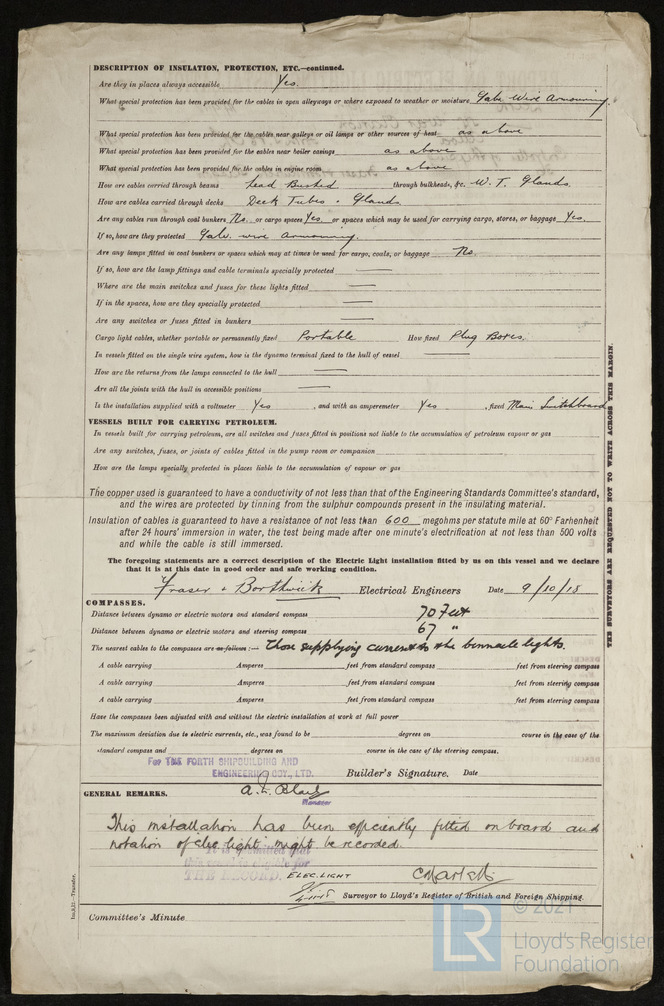 DESCRIPTION OF INSULATION, PROTECTION, ETC.—continued.
Are they in places always accessible Yes.
What special protection has been provided for the cables in open alleyways or where exposed to weather or moisture Galv. Wire Armouring.
What special protection has been provided for the cables near galleys or oil lamps or other sources of heat as above
What special protection has been provided for the cables near boiler casings as above
What special protection has been provided for the cables in engine room as above
How are cables carried through beams Lead Bushed through bulkheads, &c. W. T. Glands.
How are cables carried through decks Deck Tubes & Glands
Are any cables run through coal bunkers No. or cargo spaces Yes or spaces which may be used for carrying cargo, stores, or baggage Yes.
If so, how are they protected Galv. wire Armouring.
Are any lamps fitted in coal bunkers or spaces which may at times be used for cargo, coals, or baggage No.
If so, how are the lamp fittings and cable terminals specially protected —
Where are the main switches and fuses for these lights fitted —
If in the spaces, how are they specially protected —
Are any switches or fuses fitted in bunkers —
Cargo light cables, whether portable or permanently fixed Portable How fixed Plug Boxes.
In vessels fitted on the single wire system, how is the dynamo terminal fixed to the hull of vessel —
How are the returns from the lamps connected to the hull —
Are all the joints with the hull in accessible positions —
Is the installation supplied with a voltmeter Yes, and with an amperemeter Yes, fixed Main Switchboard
VESSELS BUILT FOR CARRYING PETROLEUM.
In vessels built for carrying petroleum, are all switches and fuses fitted in positions not liable to the accumulation of petroleum vapour or gas
Are any switches, fuses, or joints of cables fitted in the pump room or companion
How are the lamps specially protected in places liable to the accumulation of vapour or gas
The copper used is guaranteed to have a conductivity of not less than that of the Engineering Standards Committee's standard,
and the wires are protected by tinning from the sulphur compounds present in the insulating material.
Insulation of cables is guaranteed to have a resistance of not less than 600 megohms per statute mile at 60° Farhenheit
after 24 hours' immersion in water, the test being made after one minute's electrification at not less than 500 volts
and while the cable is still immersed.
The foregoing statements are a correct description of the Electric Light installation fitted by us on this vessel and we declare
that it is at this date in good order and safe working condition.
Fraser & Borthwick Electrical Engineers Date 9/10/18
COMPASSES.
Distance between dynamo or electric motors and standard compass 70 Feet
Distance between dynamo or electric motors and steering compass 67 "
The nearest cables to the compasses are as follows:— Those supplying current to the binnacle lights.
A cable carrying Amperes feet from standard compass feet from steering compass
A cable carrying Amperes feet from standard compass feet from steering compass
A cable carrying Amperes feet from standard compass feet from steering compass
Have the compasses been adjusted with and without the electric installation at work at full power
The maximum deviation due to electric currents, etc., was found to be degrees on course in the case of the
standard compass and degrees on course in the case of the steering compass.
For THE FORTH SHIPBUILDING AND
ENGINEERING COY., LTD.
Builder's Signature. Date
Manager
GENERAL REMARKS.
This installation has been efficiently fitted on board and
notation of elec light might be recorded.
It is submitted that
this vessel is eligible for
THE RECORD. ELEC. LIGHT
Surveyor to Lloyd's Register of British and Foreign Shipping.
Committee's Minute
THE SURVEYORS ARE REQUESTED NOT TO WRITE ACROSS THIS MARGIN.
© 2021
LR
Lloyd's Register
Foundation